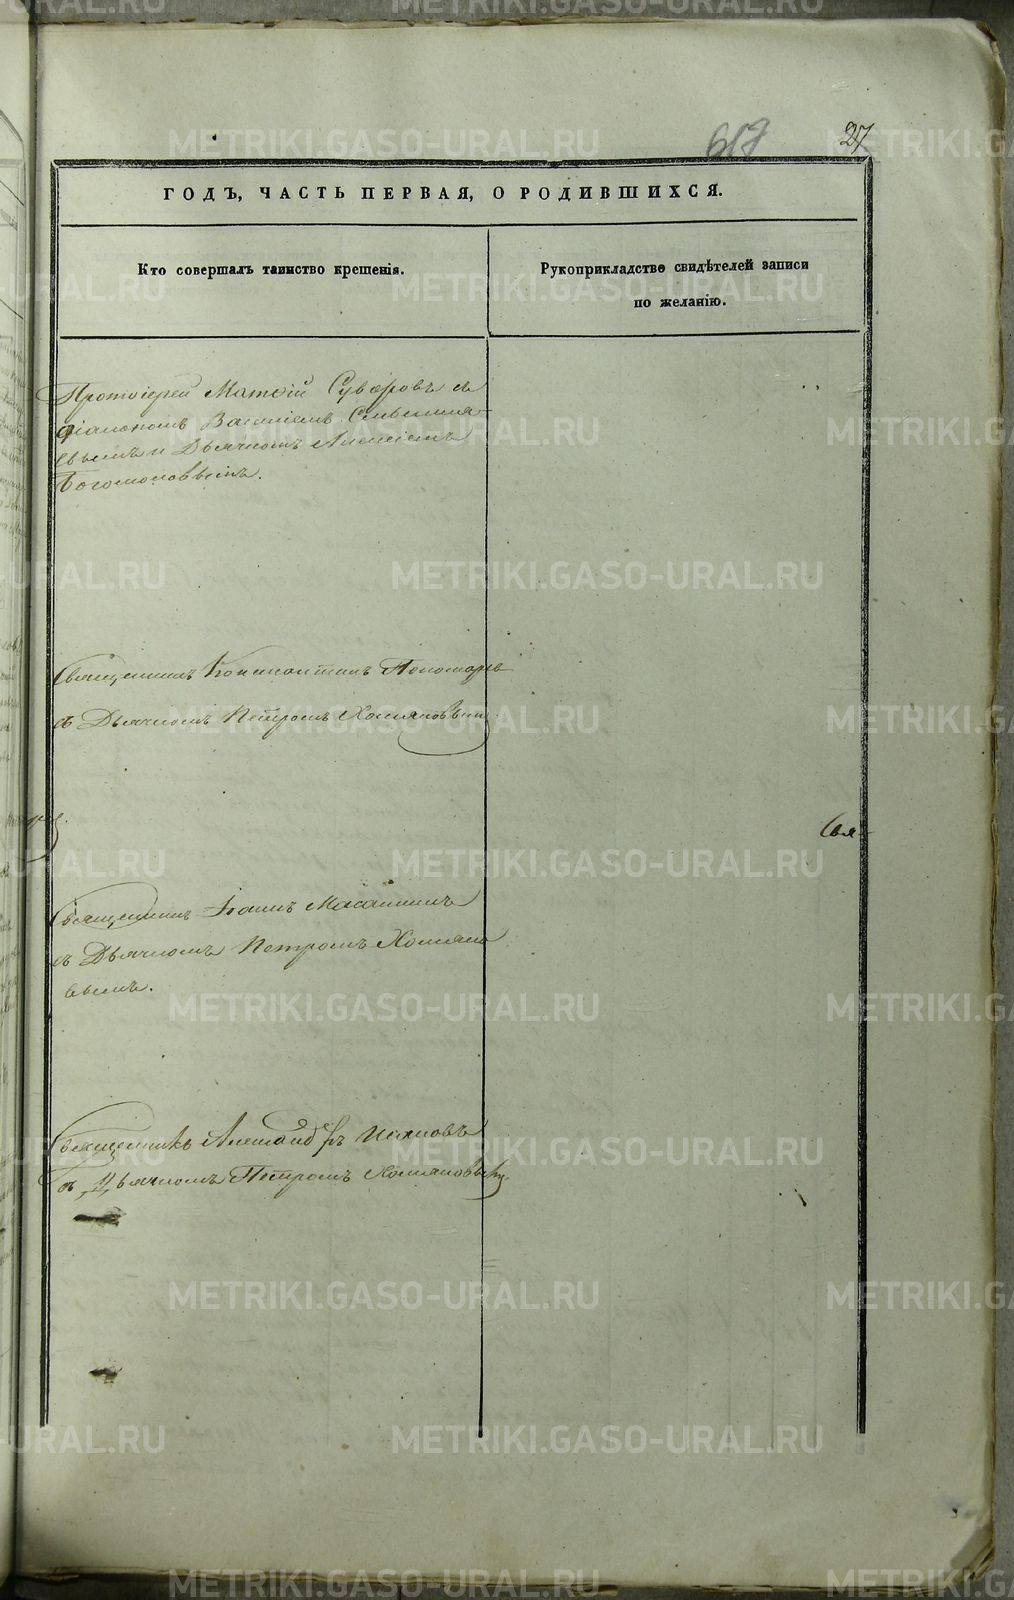 618
27
ГОДЪ, ЧАСТЬ ПЕРВАЯ, О РОДИВШИХСЯ.
Кто совершалъ таинство крещенія.
Рукоприкладство свидѣтелей записи
по желанію.
Протоіерей Матѳій Суворовъ съ
діакономъ Василіемъ
и Дьячкомъ Алексіемъ
Богомоловымъ.
Священникъ Константинъ Пономаревъ
съ Дьячкомъ Петромъ Хомяковымъ
Свя-
Священникъ Іоаннъ
съ Дьячкомъ Петромъ Хомяко
вымъ.
Священникъ Александръ
съ Дьячкомъ Петромъ Хомяковымъ.
METRIKI.GASO-URAL.RU